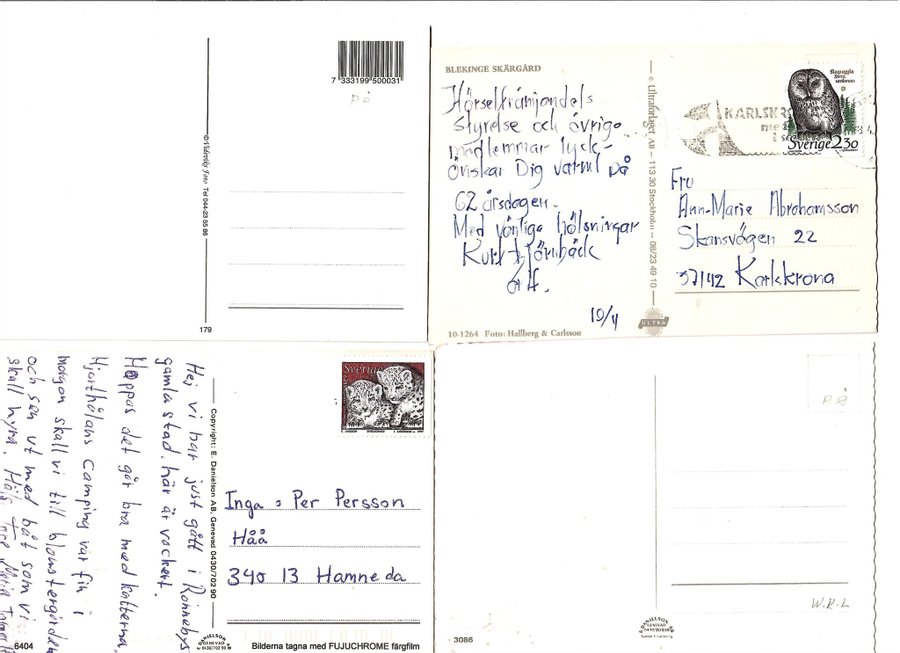 7 333199 500031
på
© Videviks Foto Tel 044-23 55 86
179
BLEKINGE SKÄRGÅRD
Hörselfrämjandets
styrelse och övriga
medlemmar lyck-
önskar Dig varmt på
62 årsdagen.
Med vänliga hälsningar
Kurt
10/4
10-1264 Foto: Hallberg & Carlsson
© Ultraförlaget AB – 113 30 Stockholm – 08/23 49 10
ULTRA
KARLSKR
Slaguggla
Strix
uralensis
Sverige 2.30
Fru
Ann-Marie Abrahamsson
Skansvägen 22
37142 Karlskrona
Hej vi har just gått i Ronneby
gamla stad, här är vackert.
Hoppas det går bra med katterna,
Camping var fin i
morgon skall vi till blomstergården
och sen ut med båt som vi
skall hyra. Häls Tore
6404
Copyright: E. Danielson AB, Genevad 0430/702 90
Sverige
Inga o Per Persson
Håå
340 13 Hamneda
DANIELSON AB
GENEVAD
0430/702 90
Bilderna tagna med FUJICHROME färgfilm
på
W.R-L
3086
DANIELSON
GENEVAD